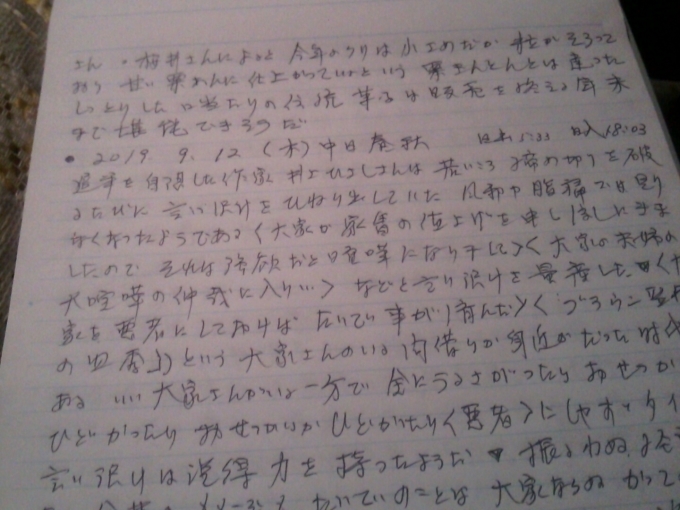 さん・桜井さんによると 今年のクリは小さめだが 粒がそろって
おり 甘い栗あんに仕上がっているという 栗きんとんとは違った
しっとりした口当たりの伝統菓子は販売を終える年末
まで堪能できそうだ
• 2019 9.12 (木) 中日春秋 日出5:33 日入18:03
遅筆を自認した作家 井上ひさしさんは 若いころ 締め切りを破
るたびに 言い訳をひねり出していた 風邪や腹痛では足り
なくなったようである〈大家が家賃の値上げを申し渡しにきま
したので それは強欲だと喧嘩になりまして〉〈大家の夫婦の
大喧嘩の仲裁に入り…〉 などと言い訳を量産した ▼〈大
家を悪者にしておけば たいてい事が済んだ〉〈
の四季〉という 大家さんのいる間借りが身近だった時代
ある いい大家さんがいる一方で 金にうるさかったり おせっか
ひどかったり おせっかいがひどかったり〈悪者〉にしやすいタイ
言い訳は説得力を持ったようだ ▼ 振るわぬ
たいていのことは 大家ならぬ かって